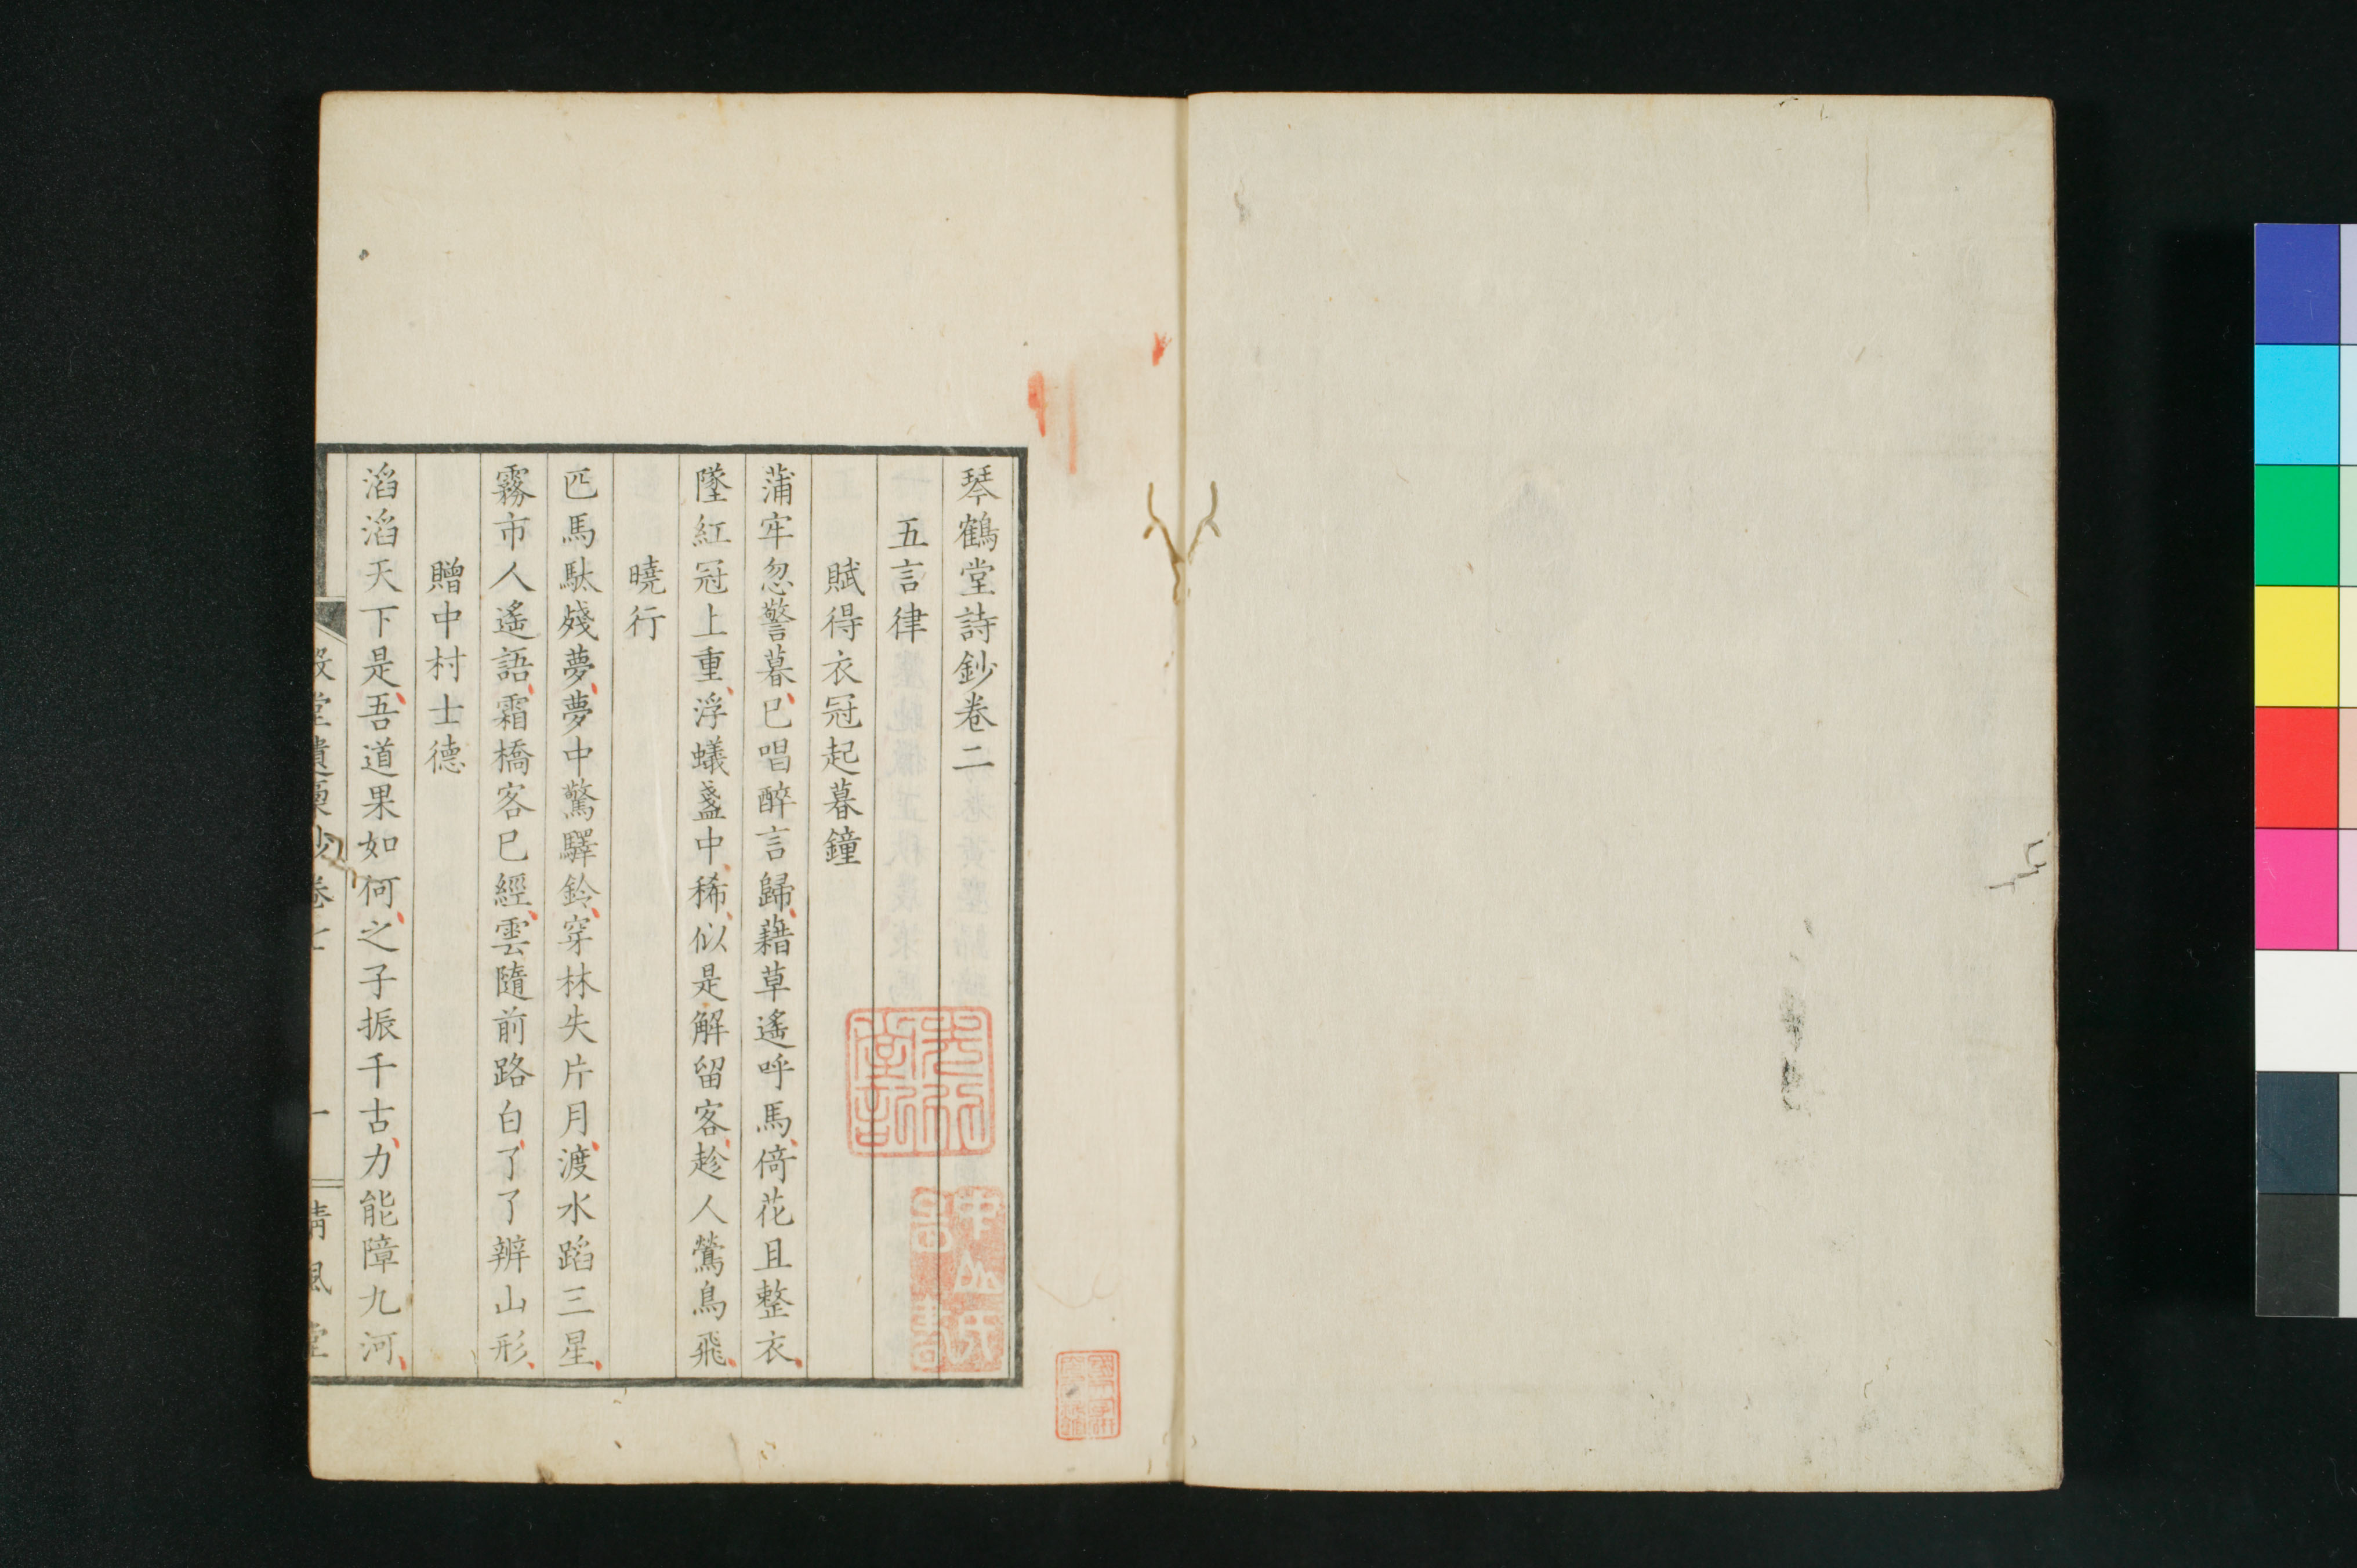 琴鶴堂詩鈔卷二
五言律
賦得衣冠起暮鐘
蒲牢忽警暮已唱醉言歸藉草遙呼馬倚花且整衣
墜紅冠上重浮蟻盞中稀似是解留客趁人鶯鳥飛
曉行
匹馬馱殘夢夢中驚驛鈴穿林失片月渡水蹈三星
霧市人遙語霜橋客已經雲隨前路白了了辨山形
贈中村士德
滔滔天下是吾道果如何之子振千古力能障九河
堂遺稾鈔卷七
一
清風堂